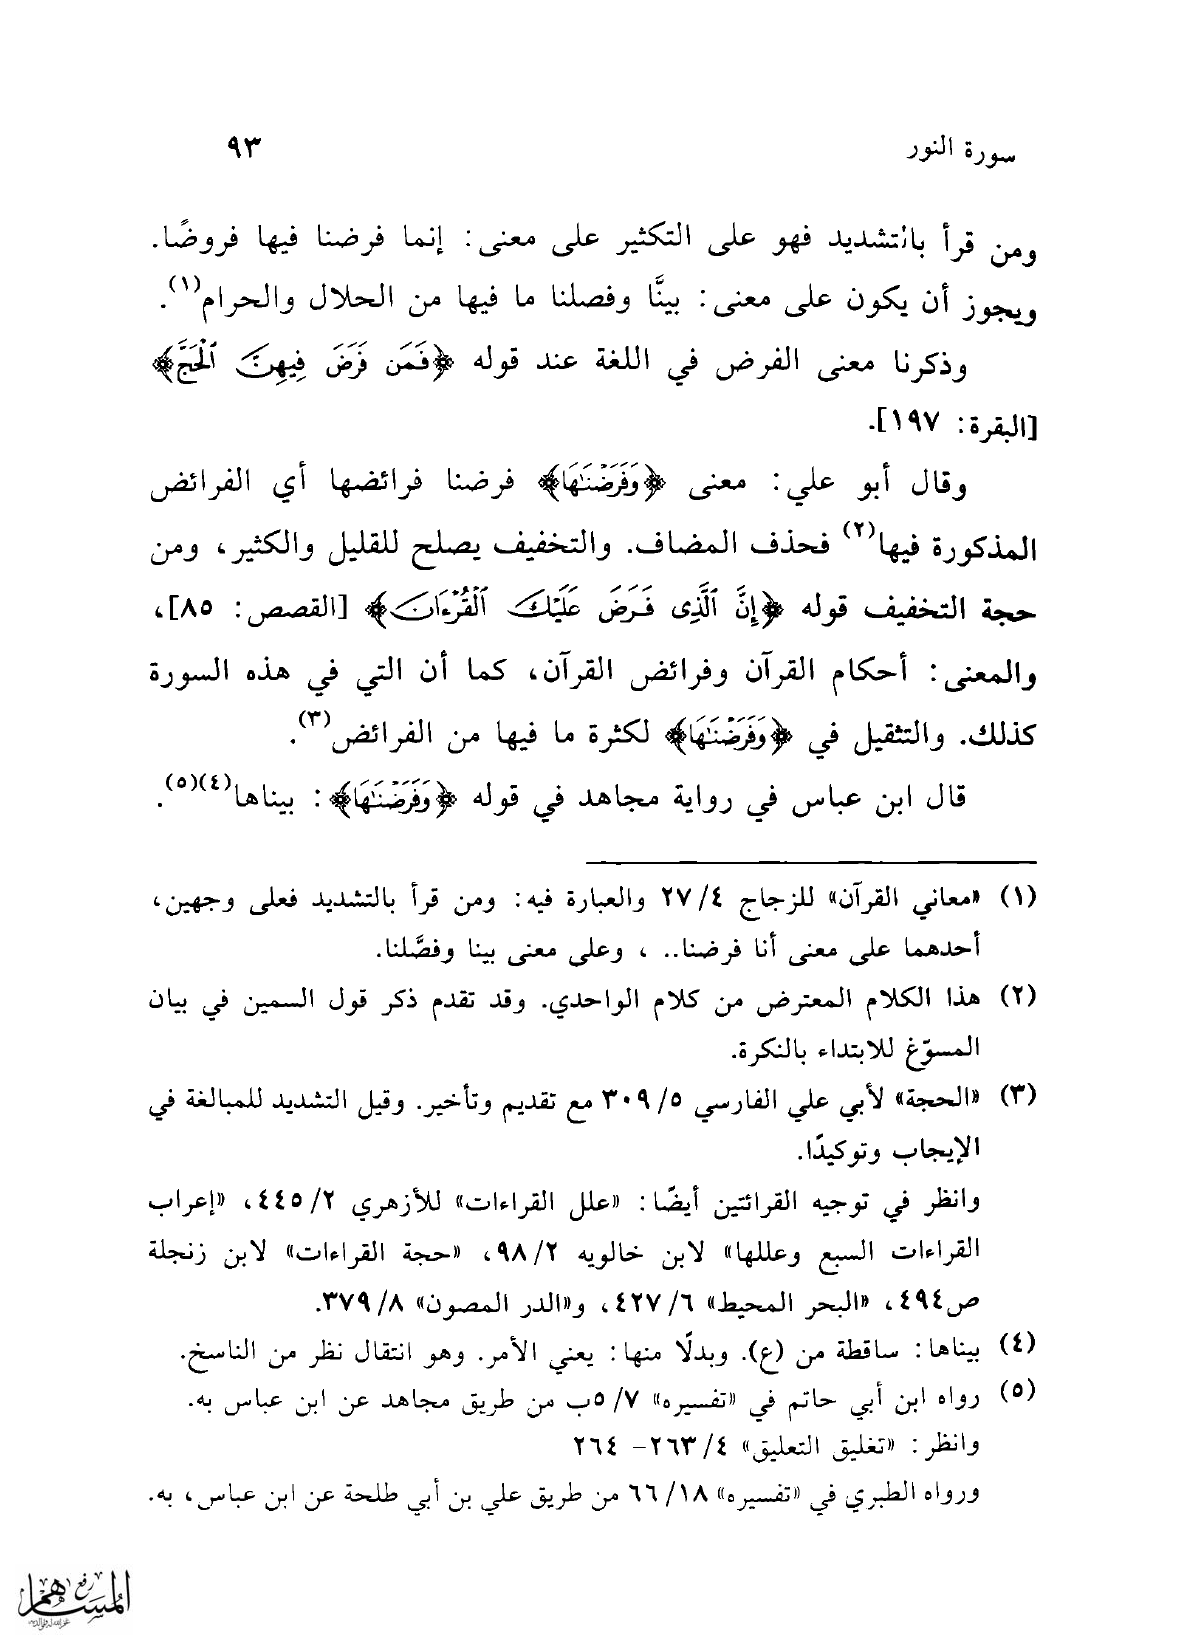 سورة النور ٩٣
ومن قرأ بالتشديد فهو على التكثير على معنى: إنما فرضنا فيها فروضًا.
ويجوز أن يكون على معنى: بينَّا وفصلنا ما فيها من الحلال والحرام(١).
وذكرنا معنى الفرض في اللغة عند قوله ﴿فَمَن فَرَضَ فِيهِنَّ ٱلْحَجَّ﴾
[البقرة: ١٩٧].
وقال أبو علي: معنى ﴿وَفَرَضْنَٰهَا﴾ فرضنا فرائضها أي الفرائض
المذكورة فيها(٢) فحذف المضاف. والتخفيف يصلح للقليل والكثير، ومن
حجة التخفيف قوله ﴿إِنَّ ٱلَّذِى فَرَضَ عَلَيْكَ ٱلْقُرْءَانَ﴾ [القصص: ٨٥]،
والمعنى: أحكام القرآن وفرائض القرآن، كما أن التي في هذه السورة
كذلك. والتثقيل في ﴿وَفَرَضْنَٰهَا﴾ لكثرة ما فيها من الفرائض(٣).
قال ابن عباس في رواية مجاهد في قوله ﴿وَفَرَضْنَٰهَا﴾: بيناها(٤)(٥).
(١) «معاني القرآن» للزجاج ٤/ ٢٧ والعبارة فيه: ومن قرأ بالتشديد فعلى وجهين،
أحدهما على معنى أنا فرضنا.. ، وعلى معنى بينا وفصَّلنا.
(٢) هذا الكلام المعترض من كلام الواحدي. وقد تقدم ذكر قول السمين في بيان
المسوّغ للابتداء بالنكرة.
(٣) «الحجة» لأبي علي الفارسي ٥/ ٣٠٩ مع تقديم وتأخير. وقيل التشديد للمبالغة في
الإيجاب وتوكيدًا.
وانظر في توجيه القرائتين أيضًا: «علل القراءات» للأزهري ٢/ ٤٤٥، «إعراب
القراءات السبع وعللها» لابن خالويه ٢/ ٩٨، «حجة القراءات» لابن زنجلة
ص٤٩٤، «البحر المحيط» ٦/ ٤٢٧، و«الدر المصون» ٨/ ٣٧٩.
(٤) بيناها: ساقطة من (ع). وبدلًا منها: يعني الأمر. وهو انتقال نظر من الناسخ.
(٥) رواه ابن أبي حاتم في «تفسيره» ٧/ ٥ب من طريق مجاهد عن ابن عباس به.
وانظر: «تغليق التعليق» ٤/ ٢٦٣– ٢٦٤
ورواه الطبري في «تفسيره» ١٨/ ٦٦ من طريق علي بن أبي طلحة عن ابن عباس، به.